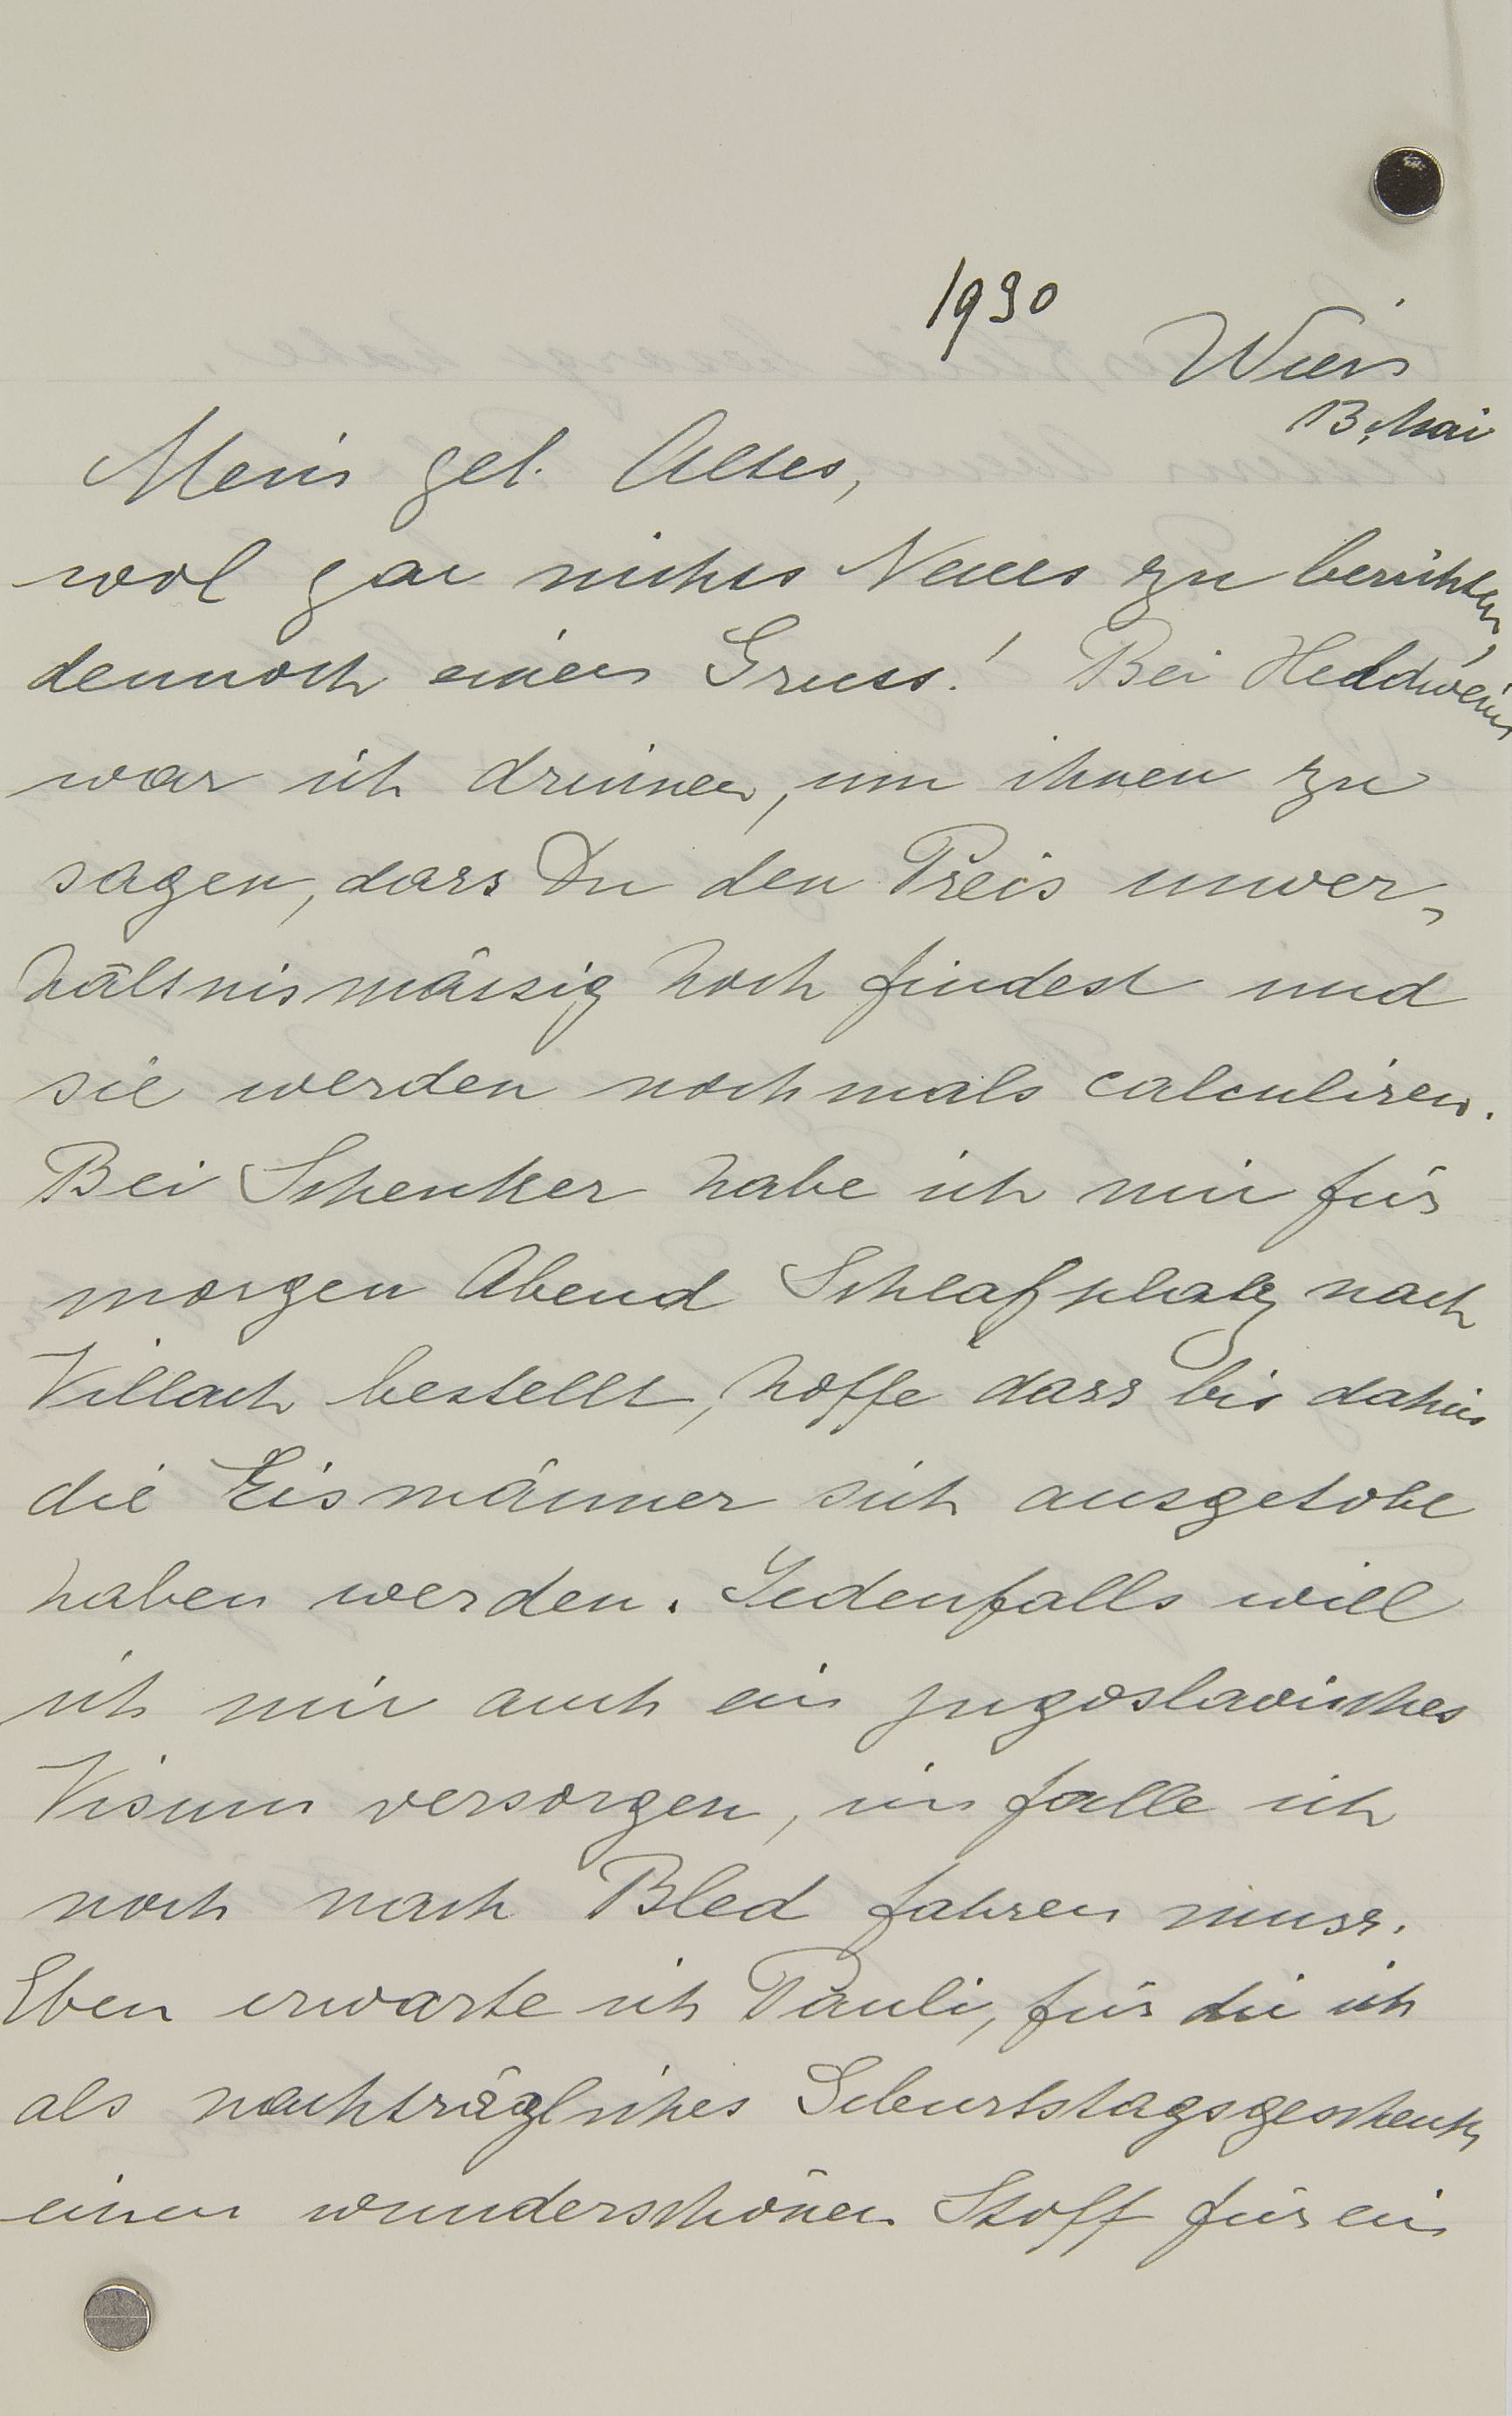 1930
Wien
13. Mai
Mein gel. Altes,
wol gar nichts Neues zu berichten,
dennoch einen Gruss! Bei Heldwein
war ich drinnen, um ihnen zu
sagen, dass Du den Preis unver-
hältnismässig hoch findest und
sie werden nochmals calculiren.
Bei Schenker habe ich mir für
morgen Abend Schlafplatz nach
Villach bestellt, hoffe dass bis dahin
die Eismänner sich ausgetobt
haben werden. Jedenfalls will
ich mir auch ein jugoslavisches
Visum versorgen, im falle ich
noch nach Bled fahren muss.
Eben erwarte ich Pauli, für die ich
als nachträgliches Geburtstagsgeschenk
einen wunderschönen Stoff für ein